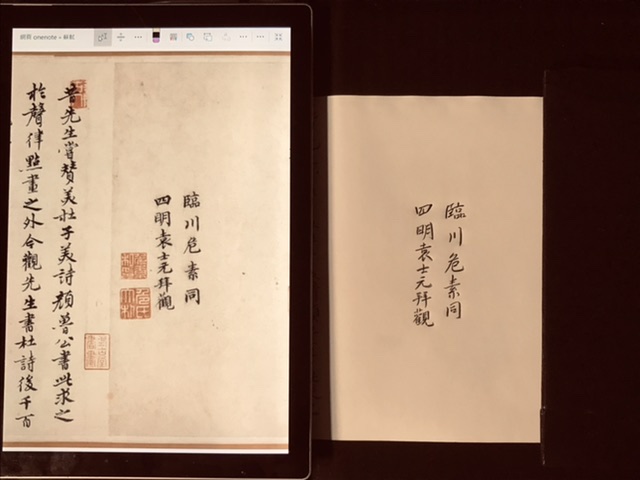 臨川危素同
四明袁士元拜觀
昔先生嘗贊美杜子美詩顏魯公書此求之
於聲律點畫之外今觀先生書杜詩後千百
臨川危素同
四明袁士元拜觀